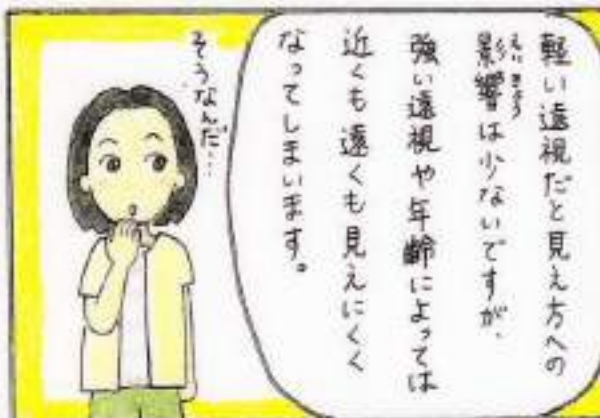 軽い遠視だと見え方への
影響は少ないですが、
えいきょう
強い遠視や年齢によっては
近くも遠くも見えにくく
なってしまいます。
そうなんだ…